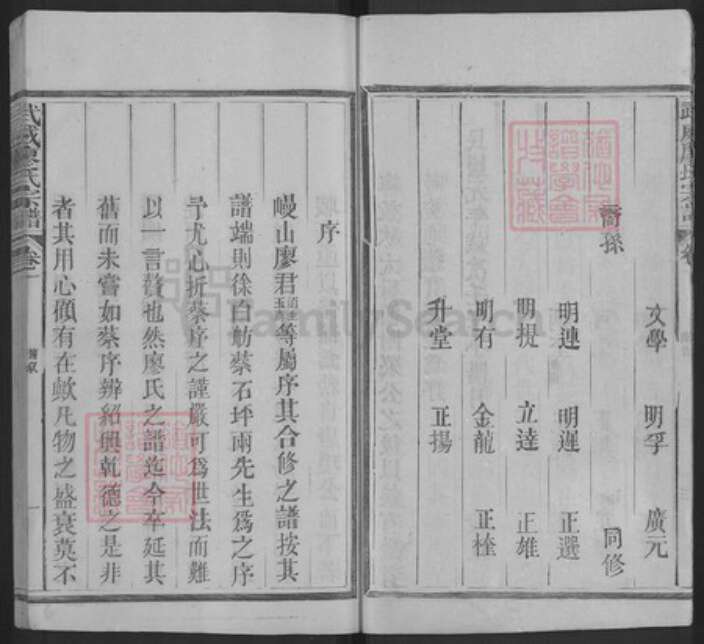 文學 明孚 廣元
裔孫 同修
明連 明遲 正選
明提 立達 正雄
明有 金龍 正栓
升堂 正揚
序
幔山廖君等屬序其合修之譜按其
譜端則徐白舫蔡石坪兩先生爲之序
予尤心折蔡序之謹嚴可爲世法而難
以一言贅也然廖氏之譜迄今卒延其
舊而未嘗如蔡序辨紹興乾德之是非
者其用心顧有在歟凡物之盛衰莫不
武威廖氏宗譜 卷一
FamilySearch